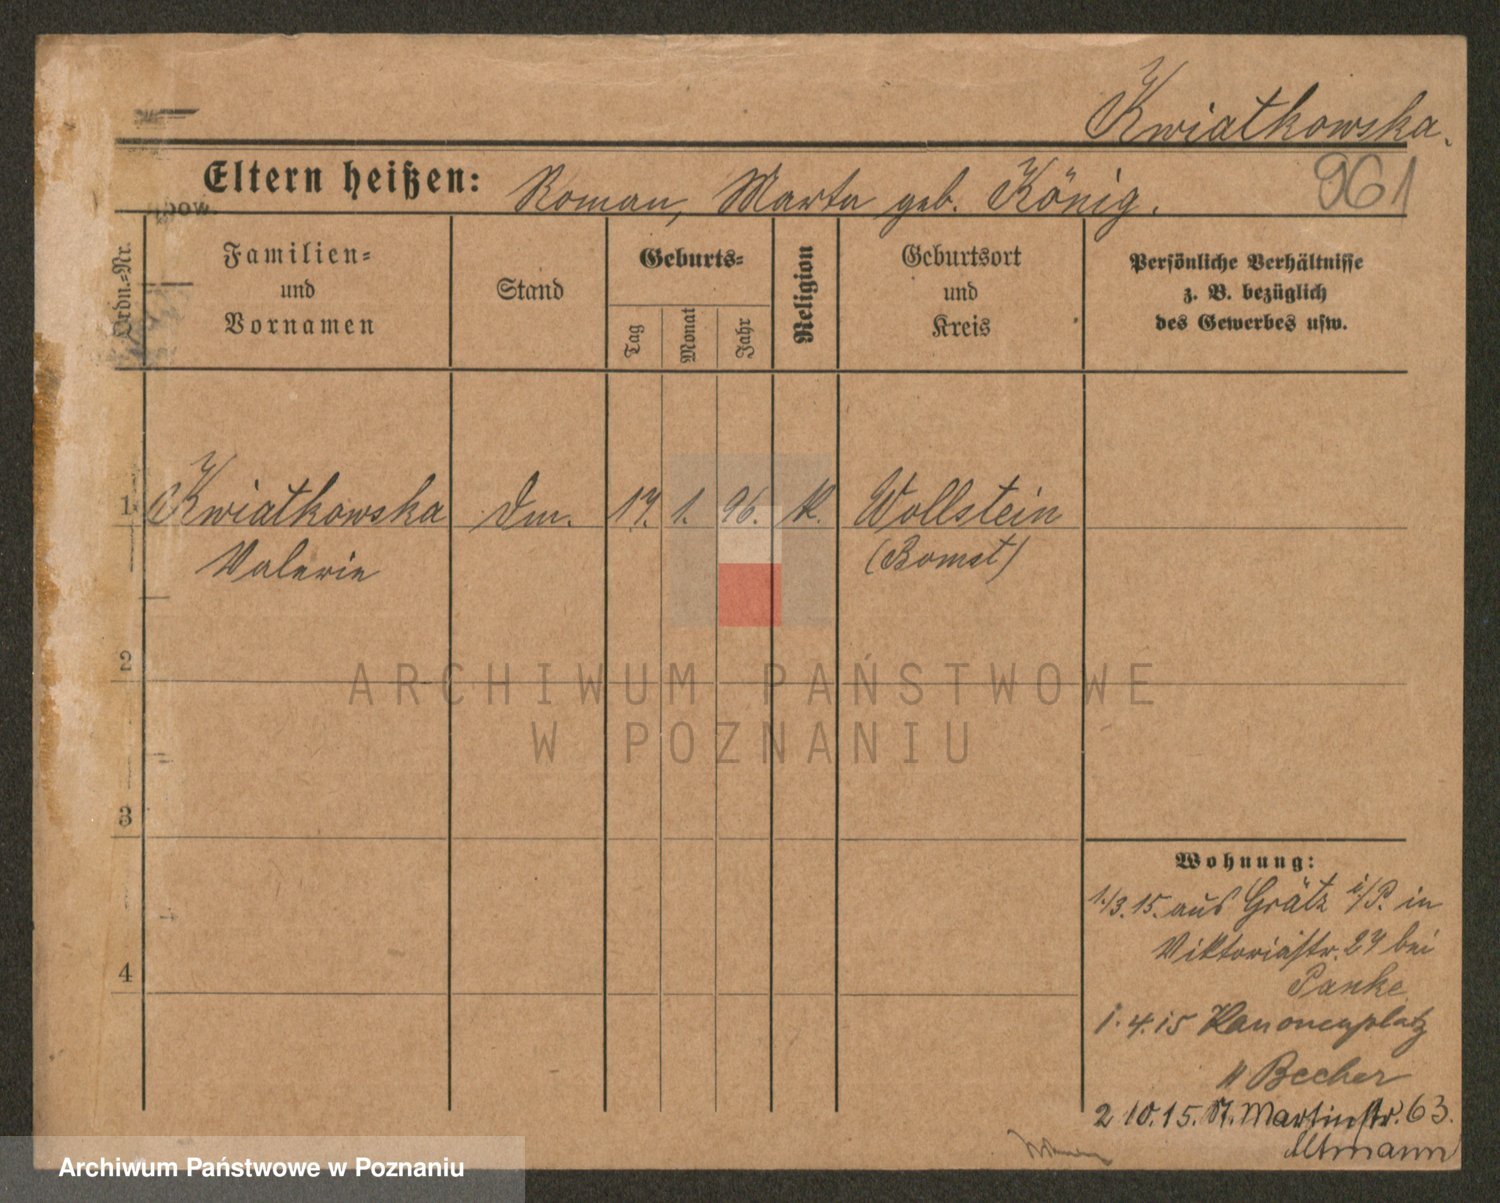 Kwiatkowska.
Eltern heißen: Roman, Marta geb. König.
961
pow.
Ordn.-Nr.
Familien-
und
Vornamen
Stand
Geburts-
Tag
Monat
Jahr
Religion
Geburtsort
und
Kreis
Persönliche Verhältnisse
z. B. bezüglich
des Gewerbes usw.
1 Kwiatkowska 17. 1. 96. k. Wollstein
Valerie (Bomst)
2
3
4
ARCHIWUM PAŃSTWOWE
W POZNANIU
Wohnung:
1./3.15. aus Grätz i/P. in
Viktoriastr. 27 bei
Panke
1.4.15 Kanonenplatz
" Becher
2 10.15. St. Martinstr. 63.
Altmann
Archiwum Państwowe w Poznaniu